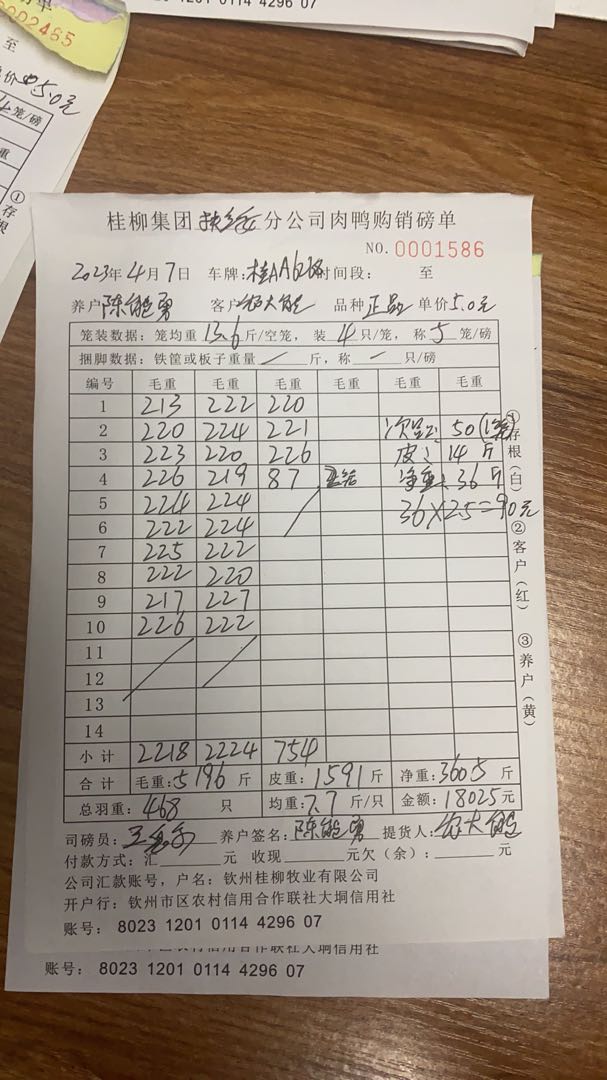 002465
至
5.0元
笼/磅
重
①存根
1201 0114 4296 07
桂柳集团 分公司肉鸭购销磅单
NO. 0001586
2023年4月7日 车牌: 桂AA 时间段: 至
养户 陈能勇 客户 农大能 品种 正品 单价 5.0元
笼装数据: 笼均重 13.6 斤/空笼, 装 4 只/笼, 称 5 笼/磅
捆脚数据: 铁筐或板子重量 / 斤, 称 一 只/磅
编号 毛重 毛重 毛重 毛重 毛重 毛重
1 213 222 220
2 220 224 221 次品: 50
3 223 220 226 皮: 14斤
4 226 219 87 净重: 36斤
5 224 224 36×2.5=90元
6 222 224
7 225 222
8 222 220
9 217 227
10 226 222
11
12
13
14
小计 2218 2224 754
合计 毛重: 5196 斤 皮重: 1591 斤 净重: 3605 斤
总羽重: 468 只 均重: 7.7 斤/只 金额: 18025 元
司磅员: 养户签名: 陈能勇 提货人: 农大能
付款方式: 汇 元 收现 元欠(余): 元
公司汇款账号, 户名: 钦州桂柳牧业有限公司
开户行: 钦州市区农村信用合作联社大垌信用社
账号: 8023 1201 0114 4296 07
①存根(白) ②客户(红) ③养户(黄)
信用合作联社大垌信用社
账号: 8023 1201 0114 4296 07